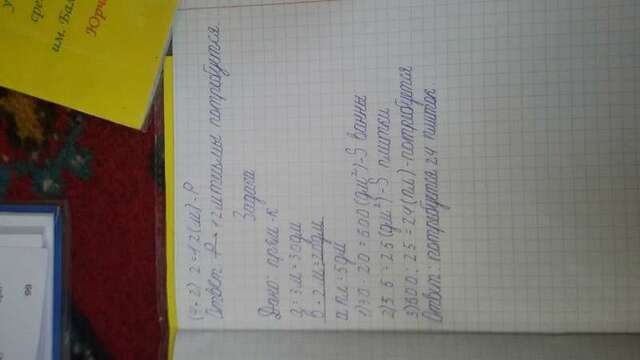 сре
им. Бал
Юрч
2 = 12 (м) - P
Ответ: 12 м тесьмы потребуется.
Задача
Дано: прям-к
a = 3 м = 30 дм
b = 2 м = 20 дм
a пл = 5 дм
1) 30 · 20 = 600 (дм²) - S ванны
2) 5 · 5 = 25 (дм²) - S плитки
3) 600 : 25 = 24 (пл) - потребуется
Ответ: потребуется 24 плиток